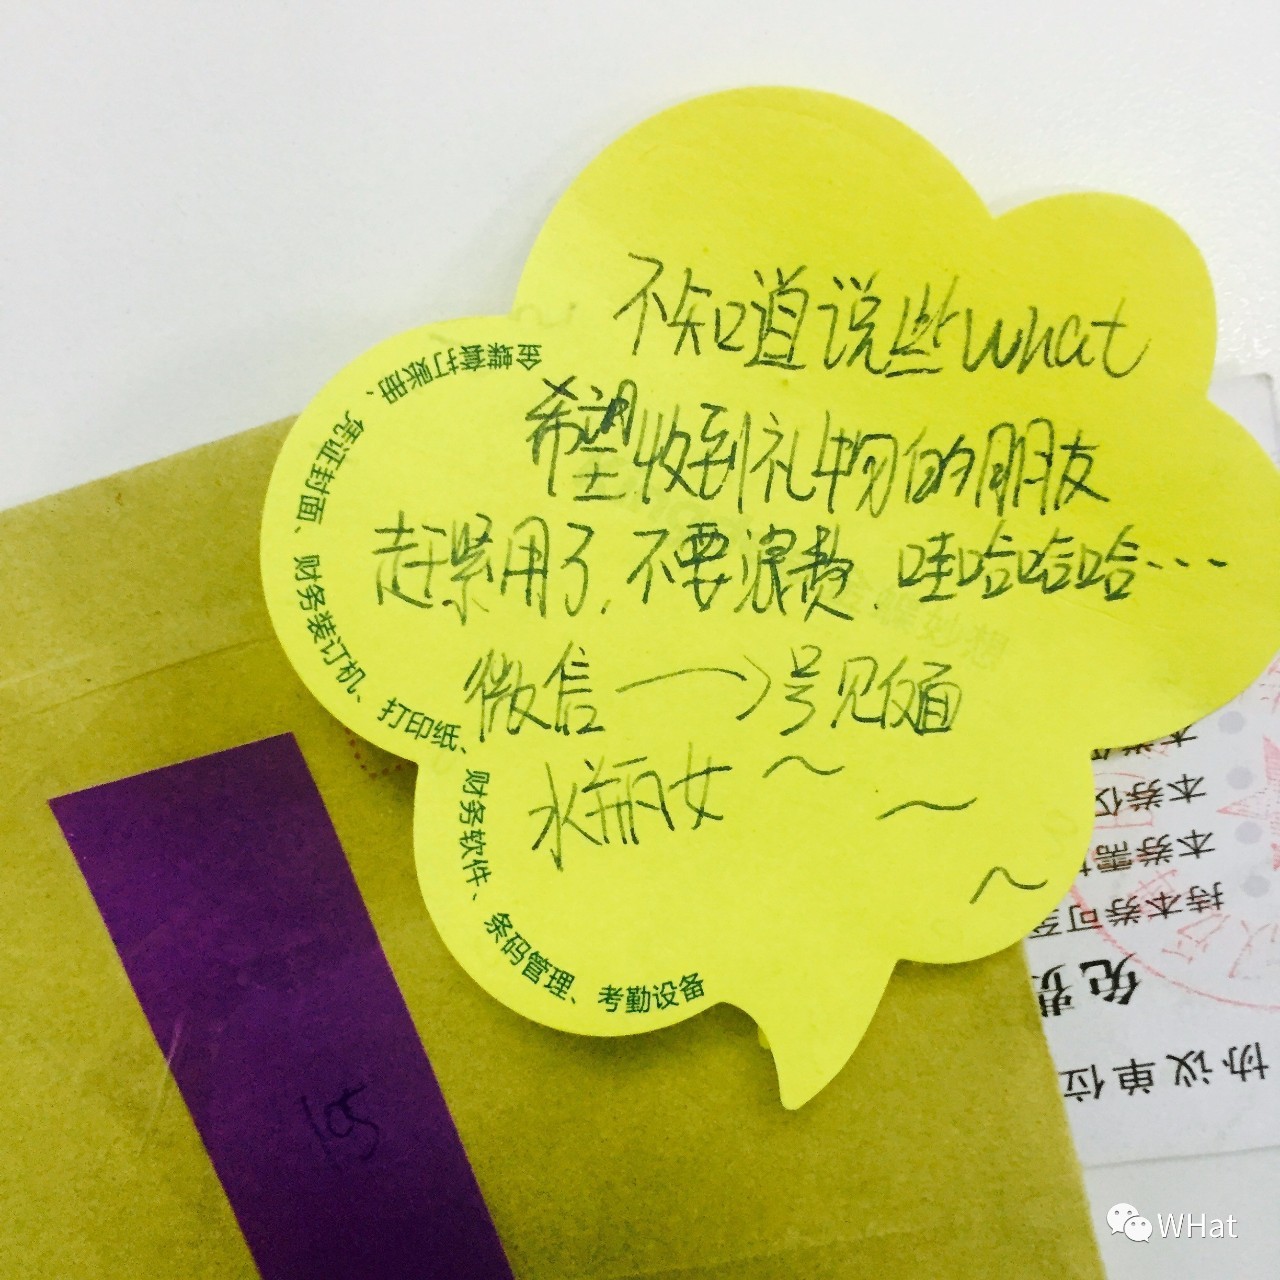 不知道说些what
希望收到礼物的朋友
赶紧用了,不要浪费,哇哈哈哈…
微信→号见反面
水瓶女~
金蝶套打账册、凭证封面、财务装订机、打印纸、财务软件、条码管理、考勤设备
金蝶妙想
195
本券仅
本券需
持本券可至
免费
协议单位
WHat